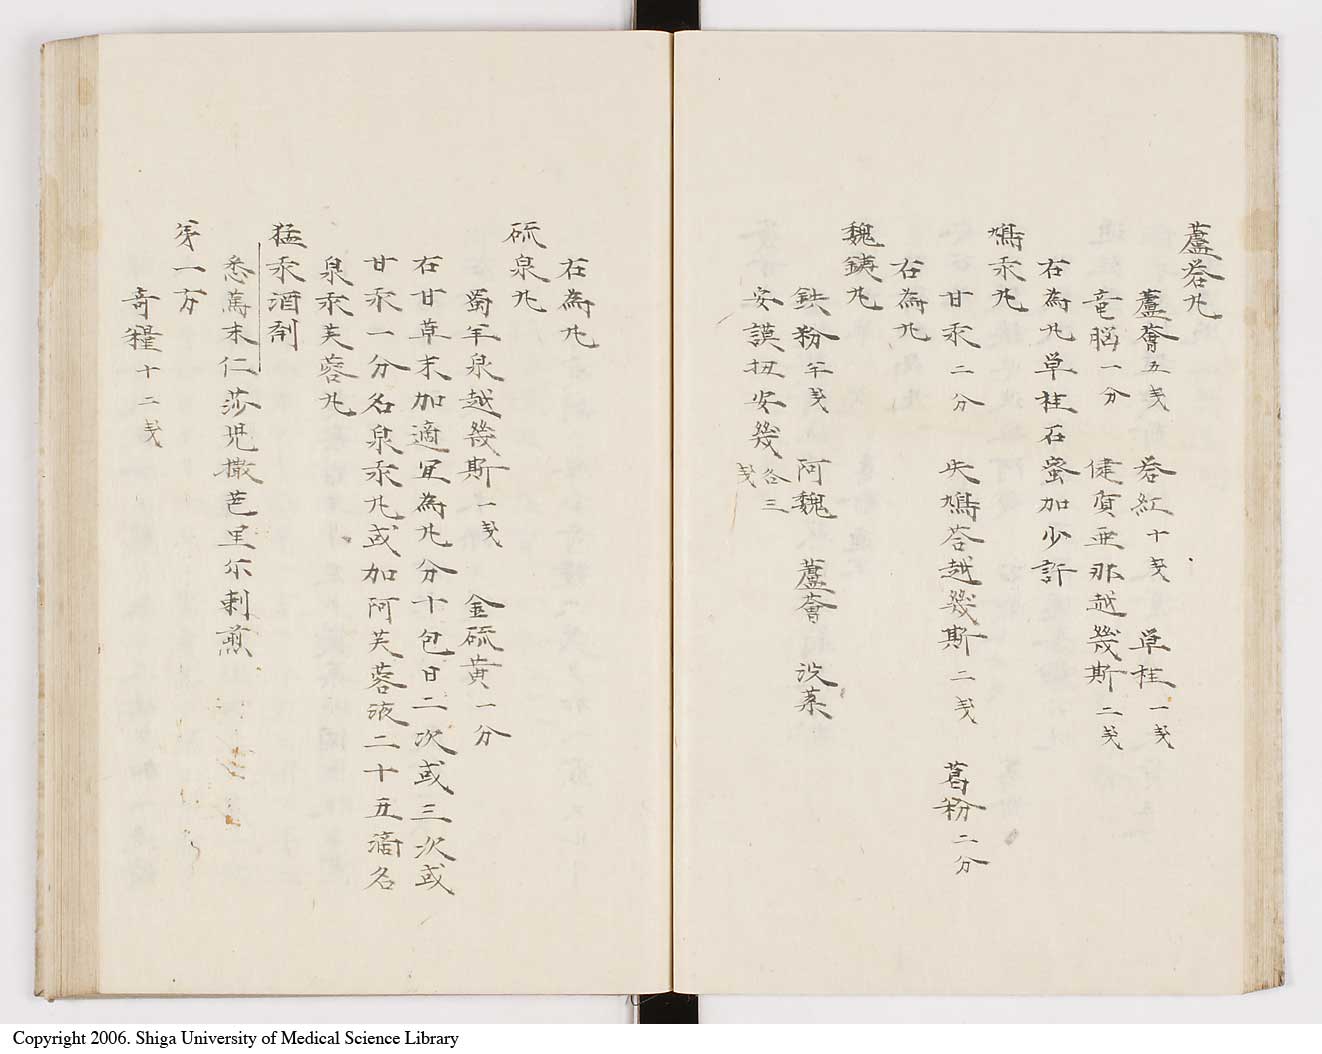 蘆荅丸
蘆薈五戔 荅紅十戔 単桂一戔
竜脳一分 健質亜那越幾斯二戔
右為丸単桂石蜜加少許
鳩汞丸
甘汞二分 失鳩荅越幾斯二戔 葛粉二分
右為丸
魏銕丸
鉄粉半戔 阿魏 蘆薈 没薬
安謨扭安幾各三戔
右為丸
硫泉丸
蜀羊泉越幾斯一戔 金硫黄一分
右甘草末加適宜為丸分十包日二次或三次或
甘汞一分名泉汞丸或加阿芙蓉液二十五滴名
泉汞芙蓉丸
猛汞酒剤
悉篤末仁莎児撒芭里尓剌煎
第一方
奇糧十二戔
Copyright 2006. Shiga University of Medical Science Library